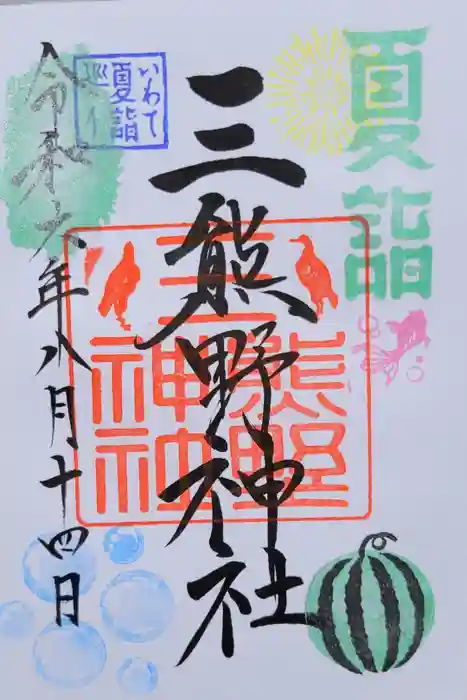 夏詣
三熊野神社
三熊野
神社
いわて
夏詣
巡り
令和六年八月十四日